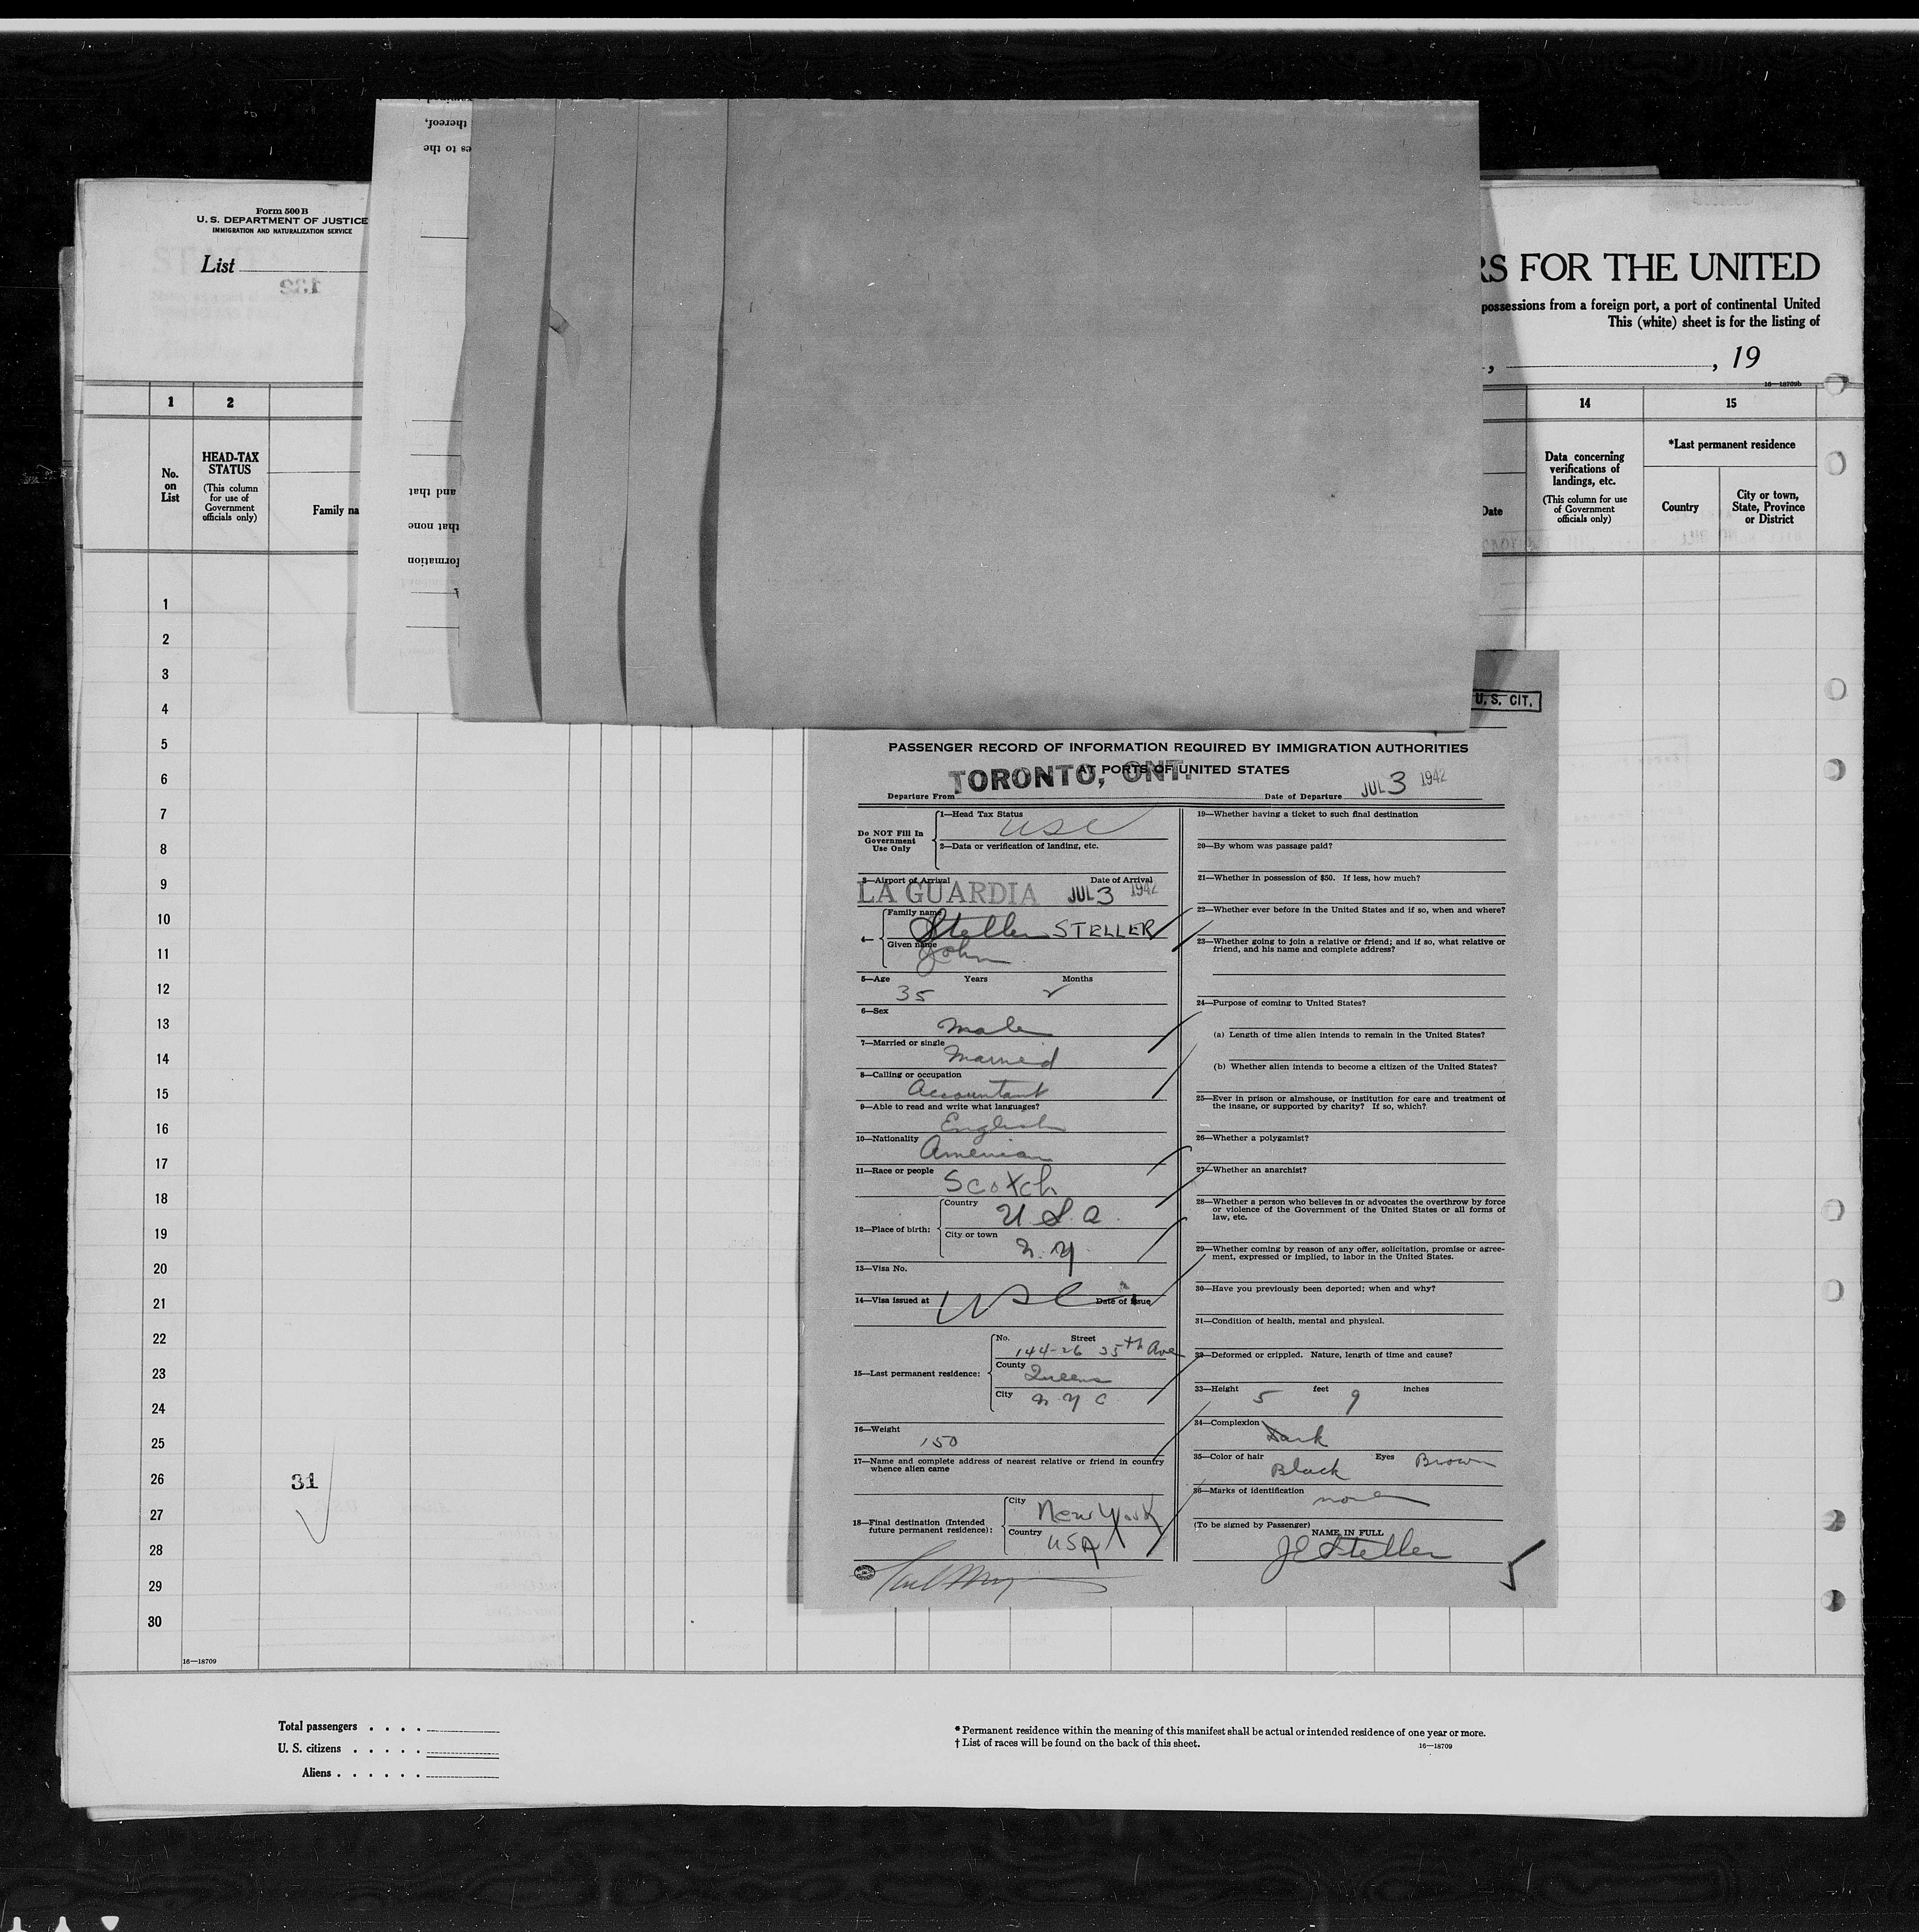 Form 500 B
U. S. DEPARTMENT OF JUSTICE
IMMIGRATION AND NATURALIZATION SERVICE
List
132
thereof,
es to the
and that
that none
formation
RS FOR THE UNITED
possessions from a foreign port, a port of continental United
This (white) sheet is for the listing of
, , 19
16—18709b
1 2 14 15
No. on List
HEAD-TAX STATUS
(This column for use of Government officials only)
Family na
Date
Data concerning verifications of landings, etc.
(This column for use of Government officials only)
*Last permanent residence
Country
City or town, State, Province or District
1
2
3
4
5
6
7
8
9
10
11
12
13
14
15
16
17
18
19
20
21
22
23
24
25
26
27
28
29
30
31
16—18709
U. S. CIT.
PASSENGER RECORD OF INFORMATION REQUIRED BY IMMIGRATION AUTHORITIES
AT PORTS OF UNITED STATES
Departure From TORONTO, ONT. Date of Departure JUL 3 1942
Do NOT Fill In Government Use Only
1—Head Tax Status USC
2—Data or verification of landing, etc.
3—Airport of Arrival Date of Arrival
LA GUARDIA JUL 3 1942
4—
Family name Steller STELLER
Given name John
5—Age 35 Years Months
6—Sex Male
7—Married or single Married
8—Calling or occupation Accountant
9—Able to read and write what languages? English
10—Nationality American
11—Race or people Scotch
12—Place of birth:
Country U.S.A.
City or town N.Y.
13—Visa No.
14—Visa issued at USC Date of Issue
15—Last permanent residence:
No. Street 144-26 35th Ave
County Queens
City N Y C
16—Weight 150
17—Name and complete address of nearest relative or friend in country whence alien came
18—Final destination (Intended future permanent residence):
City New York
Country USA
19—Whether having a ticket to such final destination
20—By whom was passage paid?
21—Whether in possession of $50. If less, how much?
22—Whether ever before in the United States and if so, when and where?
23—Whether going to join a relative or friend; and if so, what relative or
friend, and his name and complete address?
24—Purpose of coming to United States?
(a) Length of time alien intends to remain in the United States?
(b) Whether alien intends to become a citizen of the United States?
25—Ever in prison or almshouse, or institution for care and treatment of
the insane, or supported by charity? If so, which?
26—Whether a polygamist?
27—Whether an anarchist?
28—Whether a person who believes in or advocates the overthrow by force
or violence of the Government of the United States or all forms of
law, etc.
29—Whether coming by reason of any offer, solicitation, promise or agree-
ment, expressed or implied, to labor in the United States.
30—Have you previously been deported; when and why?
31—Condition of health, mental and physical.
32—Deformed or crippled. Nature, length of time and cause?
33—Height 5 feet 9 inches
34—Complexion Dark
35—Color of hair Black Eyes Brown
36—Marks of identification none
(To be signed by Passenger)
NAME IN FULL
J E Steller
5
Total passengers . . . .
U. S. citizens . . . . .
Aliens . . . . . .
* Permanent residence within the meaning of this manifest shall be actual or intended residence of one year or more.
† List of races will be found on the back of this sheet.
16—18709